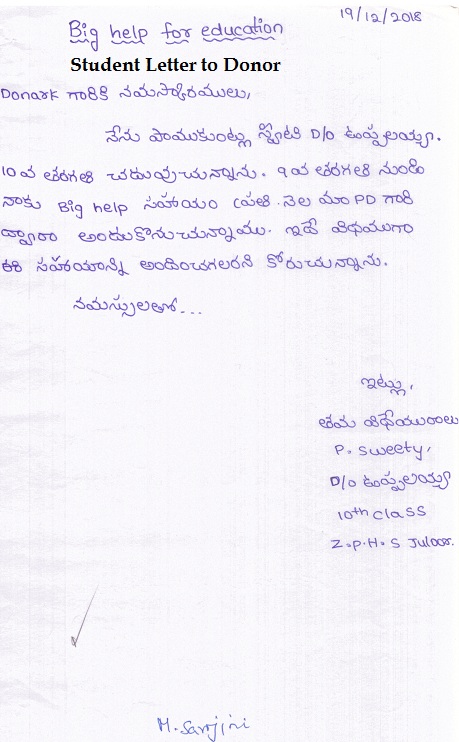 19/12/2018
Big help for education
Student Letter to Donor
Donark గారికి నమస్కారములు,
నేను పాముకుంట్ల స్వీటి D/o ఉప్పలయ్య.
10వ తరగతి చదువుచున్నాను. 9వ తరగతి నుండి
నాకు Big help సహాయం ప్రతి నెల మా PD గారి
ద్వారా అందుకొనుచున్నాము. ఇదే విధముగా
ఈ సహాయాన్ని అందించగలరని కోరుచున్నాను.
నమస్సులతో...
ఇట్లు,
తమ విధేయురాలు
P. Sweety,
D/o ఉప్పలయ్య
10th class
Z.P.H.S Juloor.
M. Sarojini